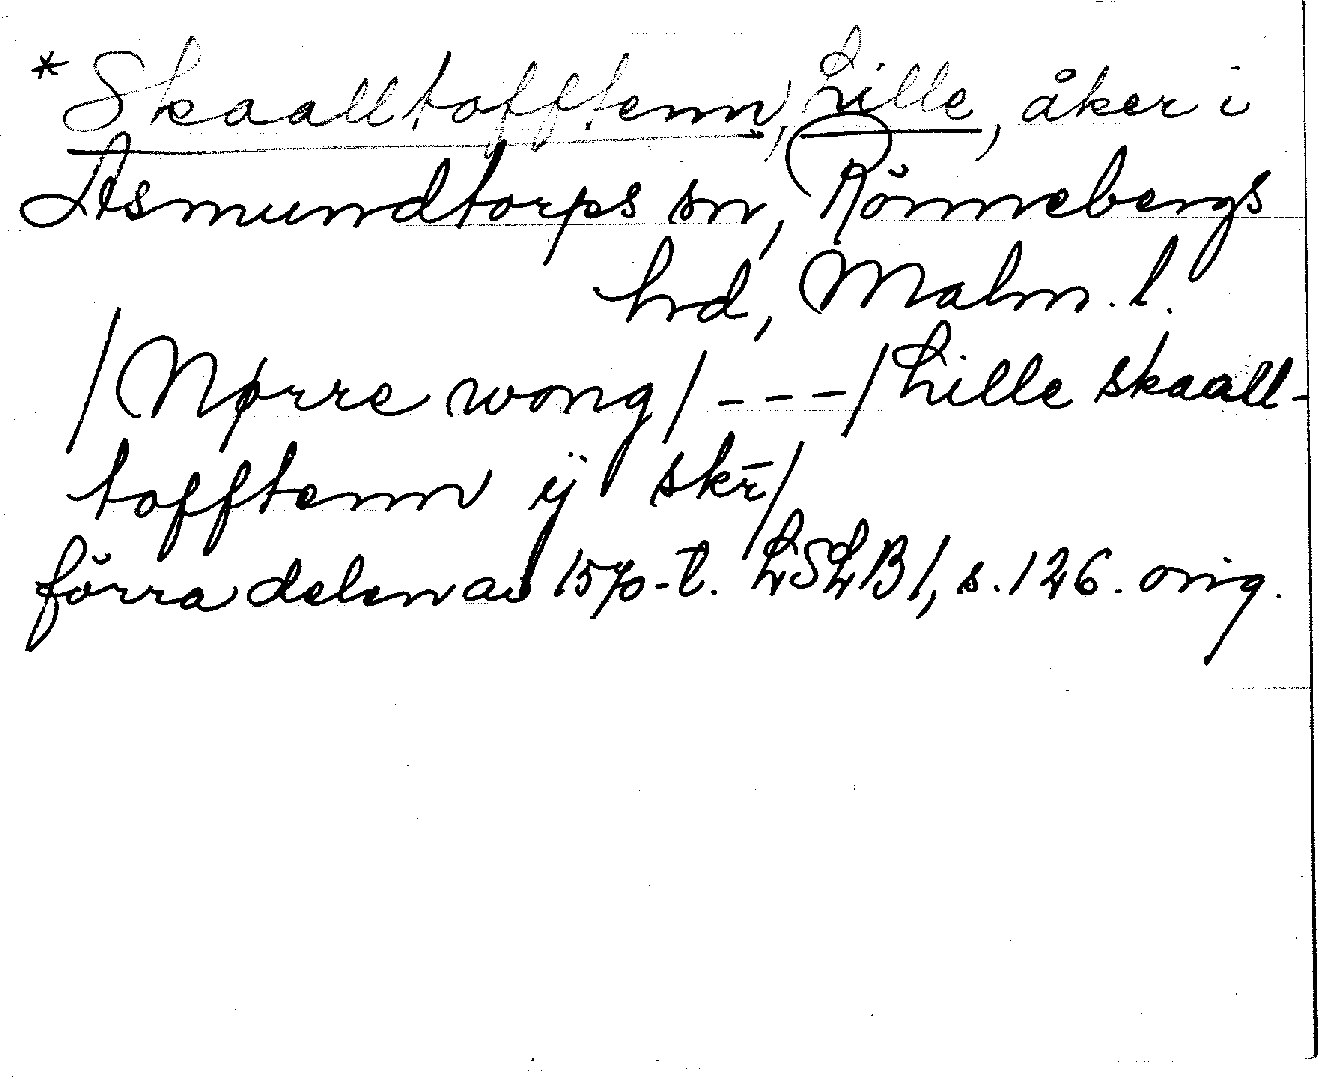 *Skaalltofftenn, Lille, åker i
Asmundtorps sn, Rönnebergs
hd, Malm. l.
/Nørre wong/ - - - /Lille skaall-
tofftenn ij skr̄/
förra delen av 1570-t. LSLB1, s. 126. orig.